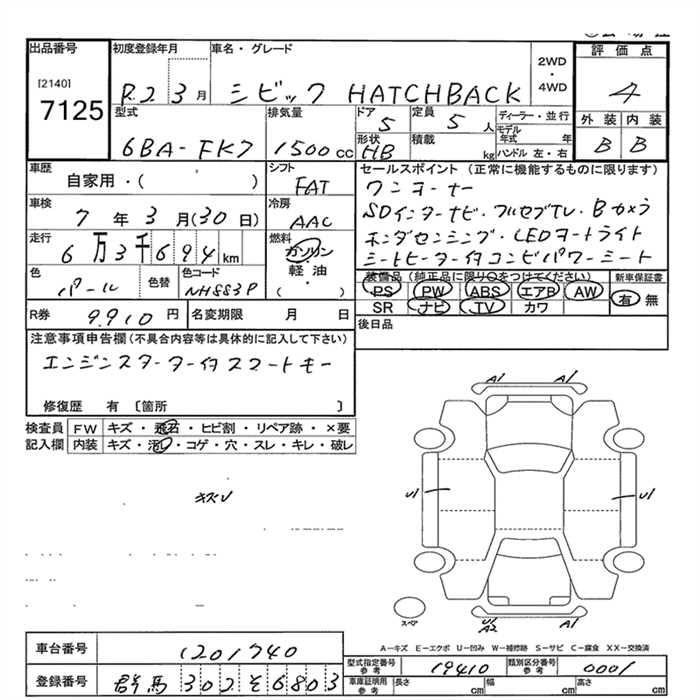 出品番号 初度登録年月 車名・グレード 2WD ・ 4WD 評価点
[2140]
7125
R.2 3月 シビック HATCHBACK 4
型式 排気量 ドア 定員 ディーラー・並行 外装 内装
6BA-FK7 1500cc 5 5人 モデル年式 年 B B
形状 積載 kg ハンドル 左・右
HB
車歴 シフト セールスポイント (正常に機能するものに限ります)
自家用・( ) FAT ワンオーナー
車検 冷房 SDインターナビ・フルセグTV・Bカメラ
7年3月(30日) AAC ホンダセンシング・LEDオートライト
走行 燃料 シートヒーター付コンビパワーシート
6万3千694km ガソリン
軽油
・
( )
色 色替 色コード 装備品(純正品に限り○をつけてください) 新車保証書
パール NH883P PS PW ABS エアB AW 有 無
SR ナビ TV カワ
R券 9,910円 名変期限 月 日 後日品
注意事項申告欄(不具合内容等は具体的に記入して下さい)
エンジンスターター付スマートキー
修復歴 有 〔箇所 〕
検査員 FW キズ・飛石・ヒビ割・リペア跡・×要
記入欄 内装 キズ・汚し・コゲ・穴・スレ・キレ・破レ
A1 A1
キズU
U1 U1
スペア
U1 A2 A1
A-キズ E-エクボ U-凹み W-補修跡 S-サビ C-腐食 XX-交換済
車台番号 1201740
型式指定番号 参考 19410 類別区分番号 参考 0001
登録番号 群馬 302 そ 6803
車庫証明用 参考 長さ cm 幅 cm 高さ cm